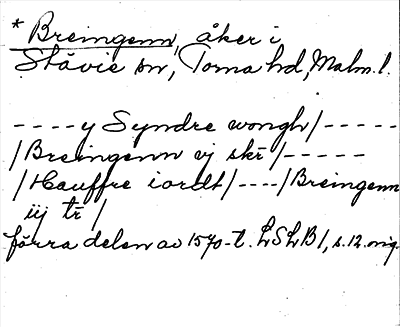 * Breingenn, åker i
Stävie sn, Torna hd, Malm. l.
----y Syndre wongh/-----
/Breingenn vj skr/-----
/Hauffre iordt/----/Breingenn
iij tr/
förra delen av 1570-t. LSLB1, s. 12. orig.